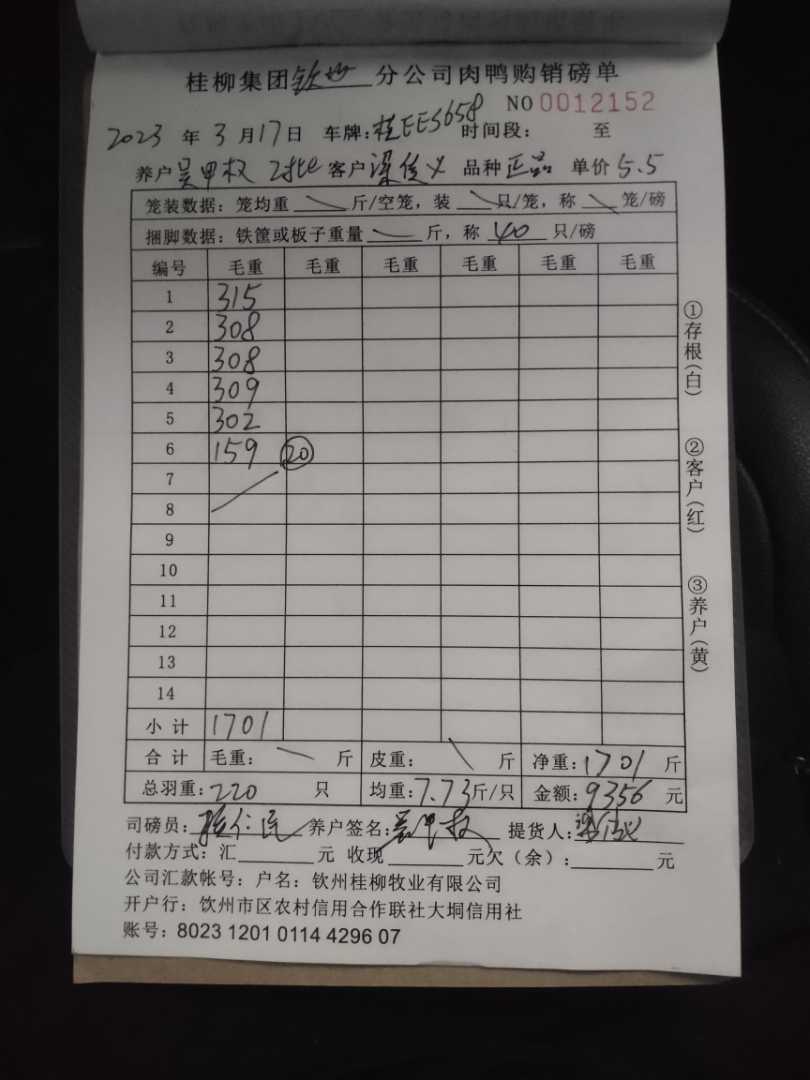 桂柳集团钦州分公司肉鸭购销磅单
NO 0012152
2023 年 3 月 17 日 车牌: 桂EES658 时间段: 至
养户 吴甲权 客户 梁俊义 品种 正品 单价 5.5
笼装数据: 笼均重 \ 斤/空笼, 装 \ 只/笼, 称 \ 笼/磅
捆脚数据: 铁筐或板子重量 \ 斤, 称 40 只/磅
编号 毛重 毛重 毛重 毛重 毛重 毛重
1 315
2 308
3 308
4 309
5 302
6 159 20
7
8
9
10
11
12
13
14
小计 1701
合计 毛重: \ 斤 皮重: \ 斤 净重: 1701 斤
总羽重: 220 只 均重: 7.73 斤/只 金额: 9356 元
司磅员: 养户签名: 吴甲权 提货人:
付款方式: 汇 元 收现 元欠(余): 元
公司汇款帐号: 户名: 钦州桂柳牧业有限公司
开户行: 饮州市区农村信用合作联社大垌信用社
账号: 8023 1201 0114 4296 07
①存根(白)
②客户(红)
③养户(黄)